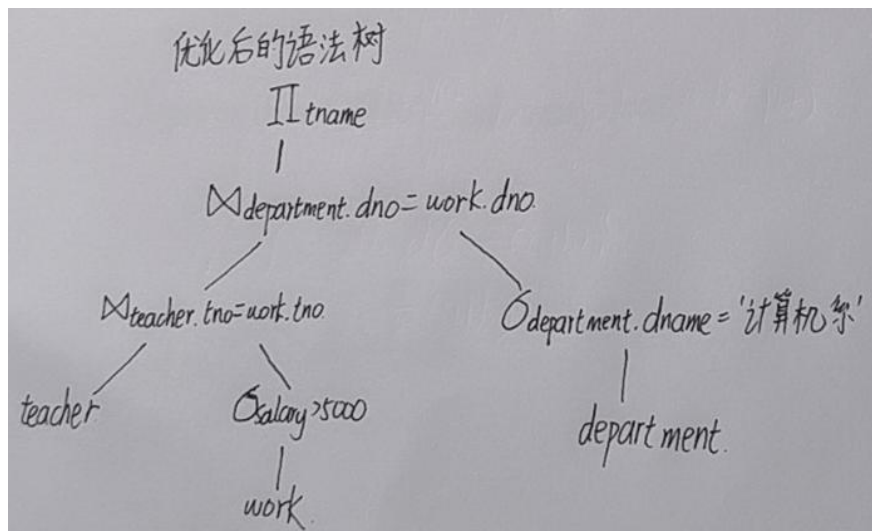 优化后的语法树
∏tname
⋈department.dno=work.dno.
⋈teacher.tno=work.tno.
σdepartment.dname='计算机系'
teacher
σsalary>5000
department.
work.